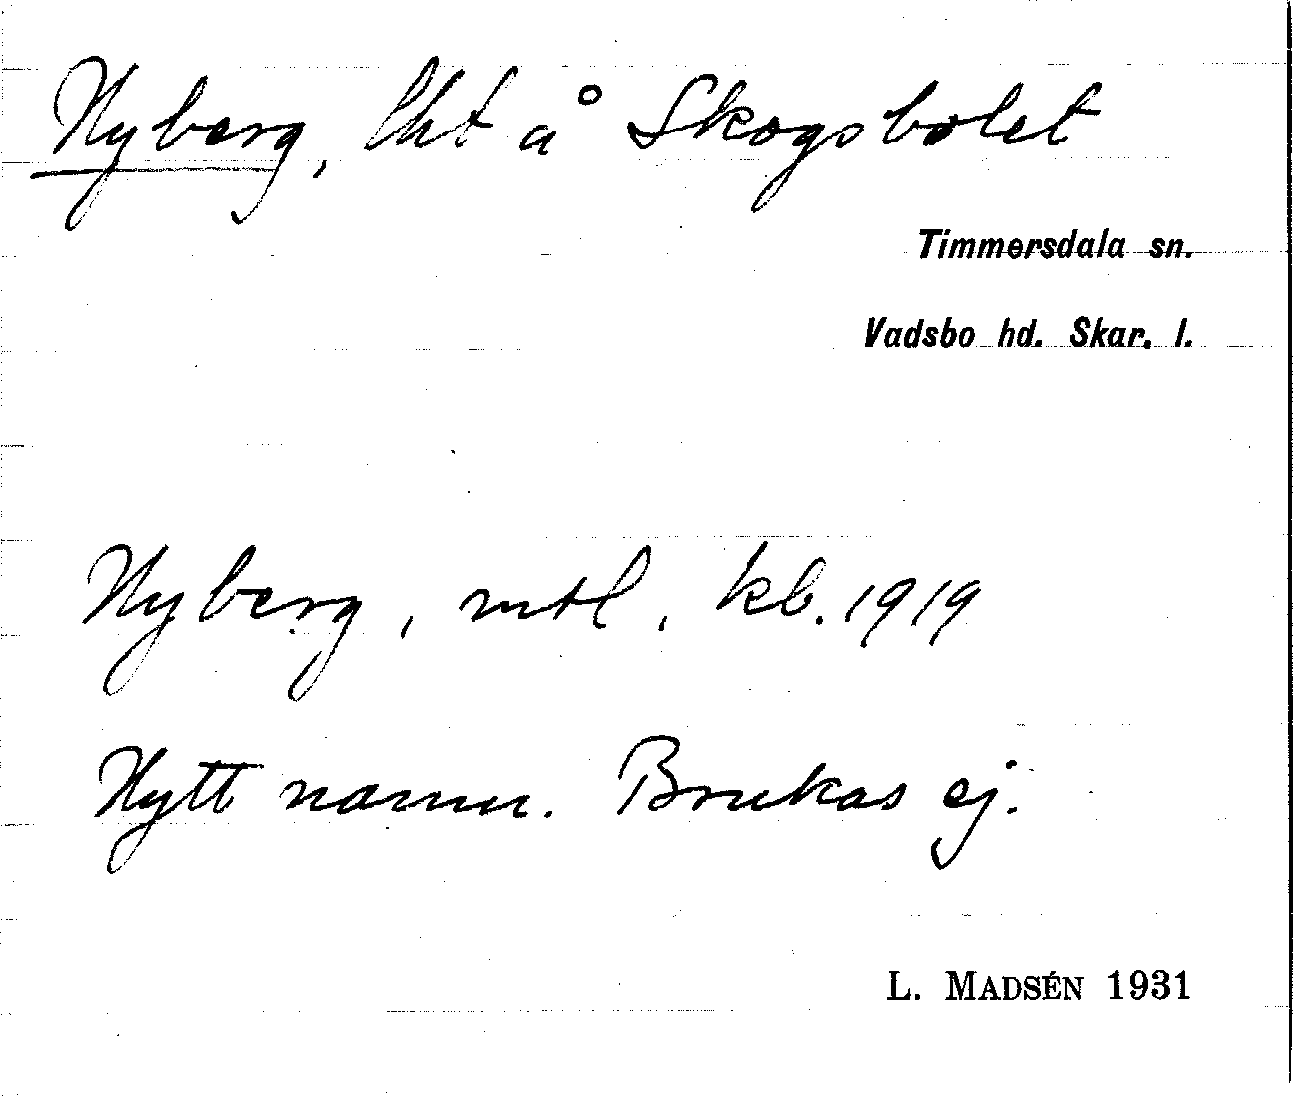 Nyberg, lht å Skogsbolet
Timmersdala sn.
Vadsbo hd. Skar. l.
Nyberg, mtl, kb. 1919
Nytt namn. Brukas ej.
L. MADSÉN 1931